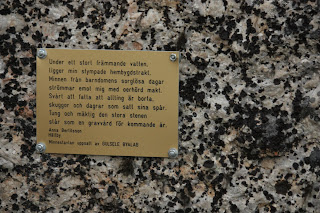 Under ett stort främmande vatten,
ligger min olympade hembygdstrakt.
Minnen från barndomens sorglösa dagar
strömmar emot mig med oerhörd makt.
Svårt att fatta att allting är borta,
skuggor och dagrar som satt sina spår.
Tung och mäktig den stora stenen
står som en gravvård för kommande år.
Anna Berittsson
Hälsby
Minnestavlan uppsatt av GULSELE BYALAG